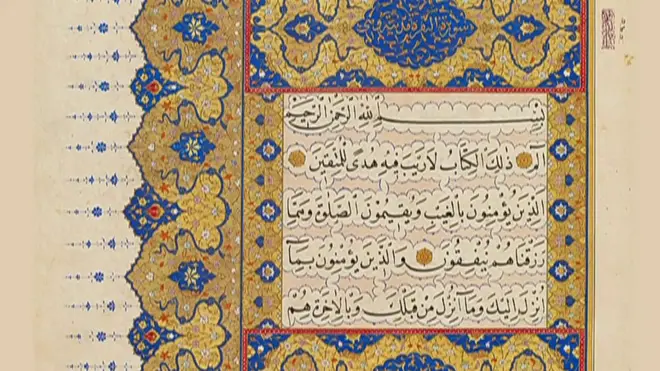 بِسْمِ اللهِ الرَّحْمٰنِ الرَّحِيمِ
الٓمٓ ذٰلِكَ الْكِتَابُ لَا رَيْبَ فِيهِ هُدًى لِلْمُتَّقِينَ
الَّذِينَ يُؤْمِنُونَ بِالْغَيْبِ وَيُقِيمُونَ الصَّلٰوةَ وَمِمَّا
رَزَقْنَاهُمْ يُنْفِقُونَ وَالَّذِينَ يُؤْمِنُونَ بِمَٓا
اُنْزِلَ اِلَيْكَ وَمَٓا اُنْزِلَ مِنْ قَبْلِكَ وَبِالْاٰخِرَةِ هُمْ